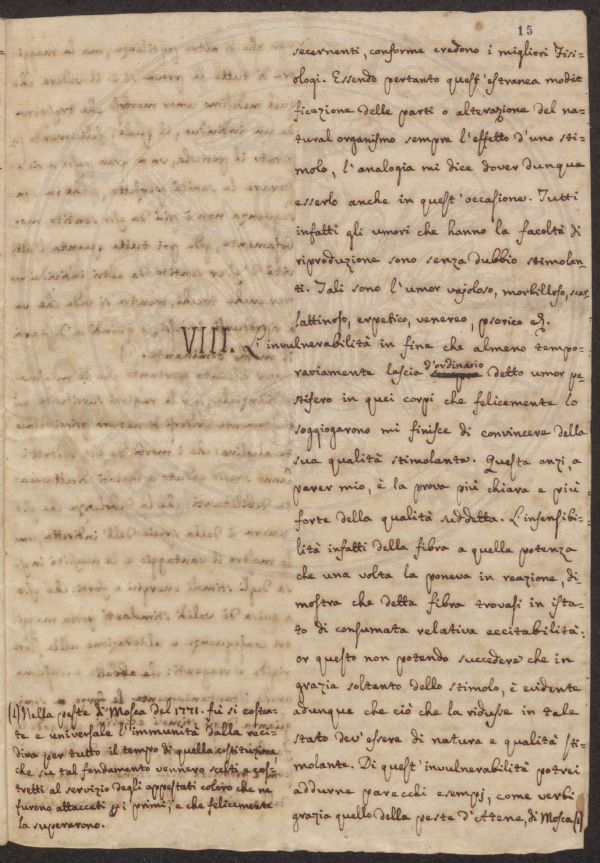 15
secernenti, conforme credono i migliori Fisi-
ologi. Essendo pertanto quest'estranea modi-
ficazione delle parti o alterazione del na-
tural organismo sempre l'effetto d'uno sti-
molo, l'analogia mi dice dover dunque
esserlo anche in quest'occasione. Tutti
infatti gli umori che hanno la facoltà di
riproduzione sono senza dubbio stimolan-
ti. Tali sono l'umor vajoloso, morbilloso, scar-
lattinoso, erpetico, venereo, psorico
VIII. L'invulnerabilità in fine che almeno tempo-
rariamente lascia d'ordinario detto umor pe-
stifero in quei corpi che felicemente lo
soggiogarono mi finisce di convincere della
sua qualità stimolante. Questa anzi, a
parer mio, è la prova più chiara e più
forte della qualità suddetta. L'insensibi-
lità infatti della fibra a quella potenza
che una volta la poneva in reazione, di-
mostra che detta fibra trovasi in ista-
to di consumata relativa eccitabilità;
or questo non potendo succedere che in
grazia soltanto dello stimolo, è evidente
adunque che ciò che la ridusse in tale
stato dev'essere di natura e qualità sti-
molante. Di quest'invulnerabilità potrei
addurne parecchi esempj, come verbi
grazia quello della peste d'Atene, di Mosca (1)
(1) Nalla peste di Mosca del 1771. fù si costan-
te e universale l'immunità dalla reci-
diva per tutto il tempo di quella costituzione,
che su tal fondamento vennero scelti e cos-
tretti al servizio degli appestati coloro che ne
furono attaccati i primi, e che felicemente
la superarono.